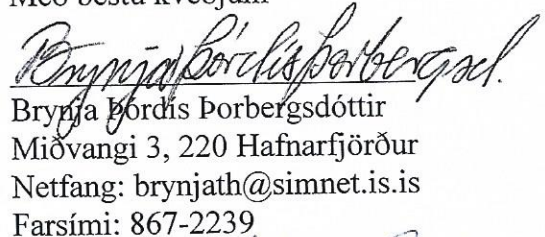 Með bestu kveðjum
Brynja Þórdís Þorbergsd.
Brynja Þórdís Þorbergsdóttir
Miðvangi 3, 220 Hafnarfjörður
Netfang: brynjath@simnet.is.is
Farsími: 867-2239